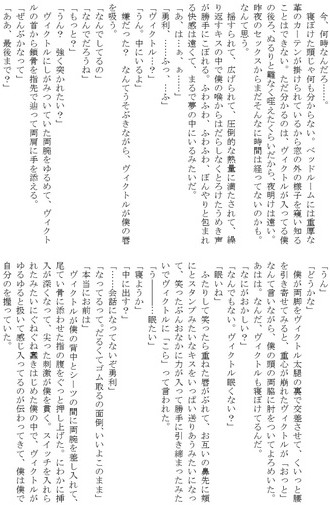 今、何時なんだろ……。
寝ぼけた頭じゃ何も分からない。ベッドルームには重厚な
革のカーテンが掛けられているから窓の外の様子を窺い知る
ことはできない。ただ分かるのは、ヴィクトルが入ってる僕
の後ろ、ぬるりと難なく咥えたくらいだから、夜明けは遠い。
昨夜のセックスからまだそんなに時間は経ってないのかも。
なんて思う。
揺すられて、広げられて、圧倒的な熱量に満たされて、繰
り返すキスの中で僕の喉からはだらしなくとろけたうめき声
が勝手にこぼれる。ふわふわ、ふわふわ、ぼんやりと包まれ
る快感は遠くて、まるで夢の中にいるみたいだ。
「あ、はぁ、ぁ……」
「勇利、……ふっ、……ふ」
「ヴィクトル……?」
「うん、中にいるよ」
嫌だった?　なんてうそぶきながら、ヴィクトルが僕の唇
を吸う。
「なんでしてるの」
「なんでだろうね」
「うん?　強く突かれたい?」
ヴィクトルにしがみついていた両腕をゆるめて、ヴィクト
ルの首から鎖骨を指先で辿って両肩に手を添える。
「ぜんぶかなって」
「ああ、最後まで?」
「うん」
「どうかな」
僕が両脚をヴィクトル太腿の裏で交差させて、くいっと腰
を引き寄せてみると、重心が崩れたヴィクトルが「おっと」
なんて言いながら、僕の頭の両脇に肘をついてよろめいた。
あはは。なんだ、ヴィクトルも寝ぼけてるんだ。
「なにがおかしい?」
「なんでもない。ヴィクトル眠くない?」
「眠いね」
ふたりして笑ったら重ねた唇がぶれて、お互いの鼻先に頬
にとスタンプみたいなキスをいっぱい送りあうみたいになっ
て、笑ったぶんおなかに力が入って勝手に引き締まったみた
いでヴィクトルに「こら」って言われた。
「寝よう」
「中に出す?」
「う――――眠たい」
「……会話になってないぞ勇利」
「なってるって、だるくてゴム取るの面倒、いいよこのまま」
「本当にお前は」
ヴィクトルが僕の背中とシーツの間に両腕を差し入れて、
尾てい骨に添わせた指の腹をぐっと押し上げた。にわかに挿
入が深くなって、尖った刺激が僕を貫く。スイッチを入れら
れたみたいにぐねぐね蠢きはじめた僕の中で、ヴィクトルが
ゆるゆると扱いて感じ入ってるのが伝わってきて、僕は僕で
自分のを握っていた。